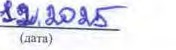 12.2025
(дата)